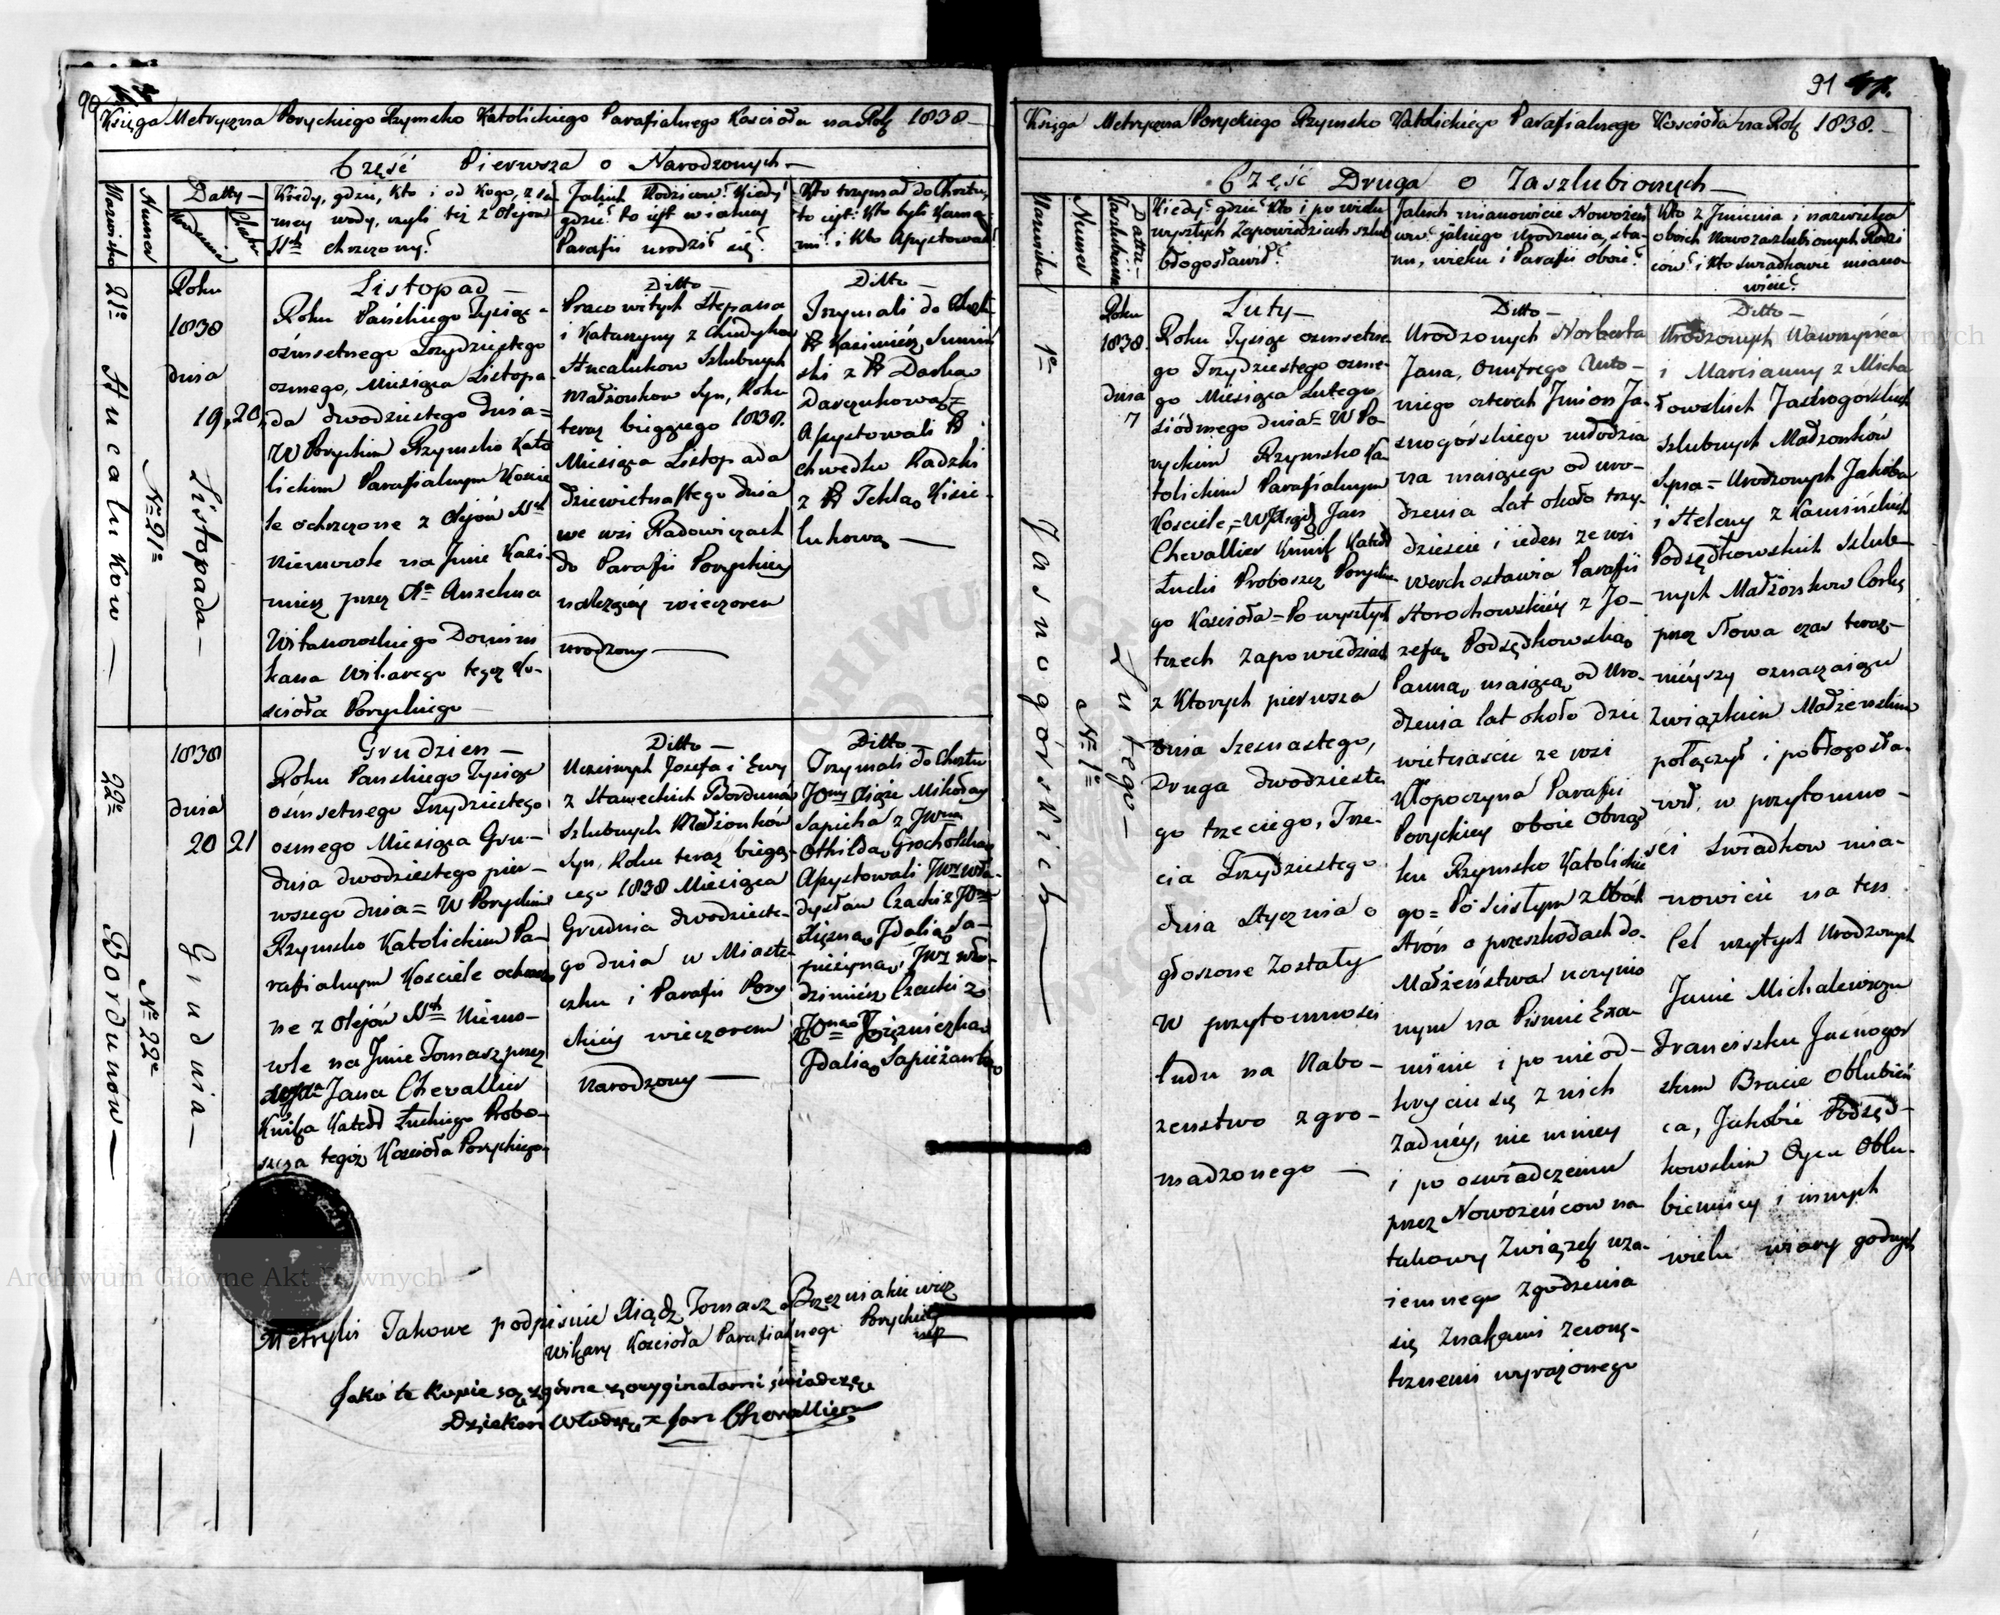 90
Księga Metryczna Poryckiego Rzymsko Katolickiego Parafialnego Kościoła na Rok 1838
Część Pierwsza o Narodzonych
Nazwisko
Numer
Datty
Chrztu
Kiedy, gdzie, Kto i od Kogo, z sa
mey wody, czyli też z Olejów
Sch chrzczony?
Jakich Rodziców? Kiedy?
gdzie? to iest w iakiey
Parafii urodził się?
Kto trzymał do Chrztu,
to iest: Kto byli Kuma
mi? i Kto Assystował?
21o Hucaluków
No 21o
Roku
1838
dnia
19, 20,
Listopada
Listopad
Roku Pańskiego Tysiąc
ośmsetnego Trzydziestego
osmego, Miesiąca Listopa
da dwodziestego dnia=
W Poryckim Rzymsko Kato
lickim Parafialnym Koście
le ochrzczone z Olejów Sch
Niemowle na Imie Kazi
mierz przez Xa Anzelma
Witanowskiego Domini
kana Wikarego tegoż Ko
scioła Poryckiego
Ditto
Pracowitych Stepana
i Katarzyny z
Hucaluków Szlubnych
Małżonków Syn, Roku
teraz bieżącego 1838.
Miesiąca Listopada
dziewietnastego dnia
we wsi Radowiczach
do Parafii Poryckiey
należącey wieczorem
urodzony
Ditto
Trzymali do Chrztu
Pr Kazimierz
ski z Pr Darką
Darczukową=
Assystowali Pr
Chwedko Radzki
z Pr Teklą Kisie
lukową
22o Bordunów
No 22o
1838
dnia
20 21
Grudnia
Grudzien
Roku Panskiego Tysiąc
ośmsetnego Trzydziestego
osmego Miesiąca Gru
dnia dwodziestego pier
wszego dnia= W Poryckim
Rzymsko Katolickim Pa
rafialnym Kościele ochrzczo
ne z Olejów Sch Niemo
wle na Imie Tomasz przez
Jana Chevallier
Kanika Kated Łuckiego Probo
szcza tegoż Kościoła Poryckiego
Ditto
Uczciwych Jozefa i Ewy
z Staweckich Bordunów
Szlubnych Małżonków
Syn, Roku teraz bieżą
cego 1838 Miesiąca
Grudnia dwodzieste
go dnia w Miaste
czku i Parafii Pory
ckiey wieczorem
Narodzony
Ditto
Trzymali do Chrztu
JOny Xiąże Mikołay
Sapieha z JWną
Othildą Grocholską
Assystowali JW Wła
dysław Czacki z JOną
Xiężną Idalią Sa
pieżyną, JW Wło
dzimierz Czacki z
JOną Xiężniczką
Idalią Sapieżanką
Metryki Takowe podpisuie Xiądz Tomasz Brzezniakiewicz
Wikary Kościoła Parafialnego Poryckiego
mp
Jako te kopie są zgodne z oryginałami, świadczę
Dziekan Włodz. Jan Chevallier
91
Księga Metryczna Poryckiego Rzymsko Katolickiego Parafialnego Kościoła na Rok 1838.
Część Druga o Zaszlubionych
Nazwiska
Numer
Datta
Zaszlubienia
Kiedy? gdzie? Kto i po wielu
wyszłych Zapowiedziach szlub
błogosławił?
Jakich mianowicie Nowożen
ców? jakiego urodzenia, sta
nu, wieku i Parafii oboie?
Kto z Imienia i nazwiska
oboich Nowozaszlubionych Rodzi
ców? i Kto Swiadkowie miano
wicie?
1o Jasnogórskich
No 1o
Roku
1838.
dnia
7
Lutego
Luty
Roku Tysiąc osmsetne
go Trzydziestego osme
go Miesiąca Lutego
siódmego dnia= W Po
ryckim Rzymsko Ka
tolickim Parafialnym
Kosciele=WJXiądz Jan
Chevallier Kanik Kated
Łucki Proboszcz Porycki
go Kościoła=Po wyszłych
trzech Zapowiedziach
z Ktorych pierwsza
dnia Szesnastego,
Druga dwodzieste
go trzeciego, Trze
cia Trzydziestego
dnia Stycznia o
głoszone Zostały
W przytomnosci
ludu na Nabo
zenstwo zgro
madzonego
Ditto
Urodzonych Norberta
Jana, Onufrego Anto
niego czterech Imion Ja
snogórskiego młodzia
na maiącego od uro
dzenia lat około trzy
dziescie i ieden ze wsi
Werchostawia Parafii
Horochowskiéy z Jo
zefą Podsędkowską
Panną, maiącą od Uro
dzenia lat około dzie
wietnascie ze wsi
Kłopoczyna Parafii
Poryckiey oboie Obrząd
ku Rzymsko Katolickie
go= Po Scisłym z Obóch
Strón o przeszkodach do
Małżeństwa uczynio
nym na Pismie Exa
minie i po nieod
kryciu się z nich
Zadnéy, nie mniey
i po oswiadczeniu
przez Nowożeńców na
takowy Związek wza
iemnego Zgodzenia
się Znakami zewnę
trznemi wyrażonego
Ditto
Urodzonych Wawrzyńca
i Marianny z Micha
łowskich Jasnogórskich
Szlubnych Małżonków
Syna= Urodzonych Jakóba
i Heleny z Kamińskich
Podsędkowskich Szlub
nych Małżonków Corkę
przez Słowa czas teraz
nieyszy oznaczaiące
Związkiem Małżenskim
połączył i pobłogosła
wił, w przytomno
sci swiadkow mia
nowicie na ten
Cel użytych Urodzonych
Janie Michalewiczu
Franciszku Jasnogór
skim Bracie Oblubień
ca, Jakóbie Podsęd
kowskim Oycu Oblu
bienicy i innych
wielu wiary godnych
Archiwum Główne Akt Dawnych